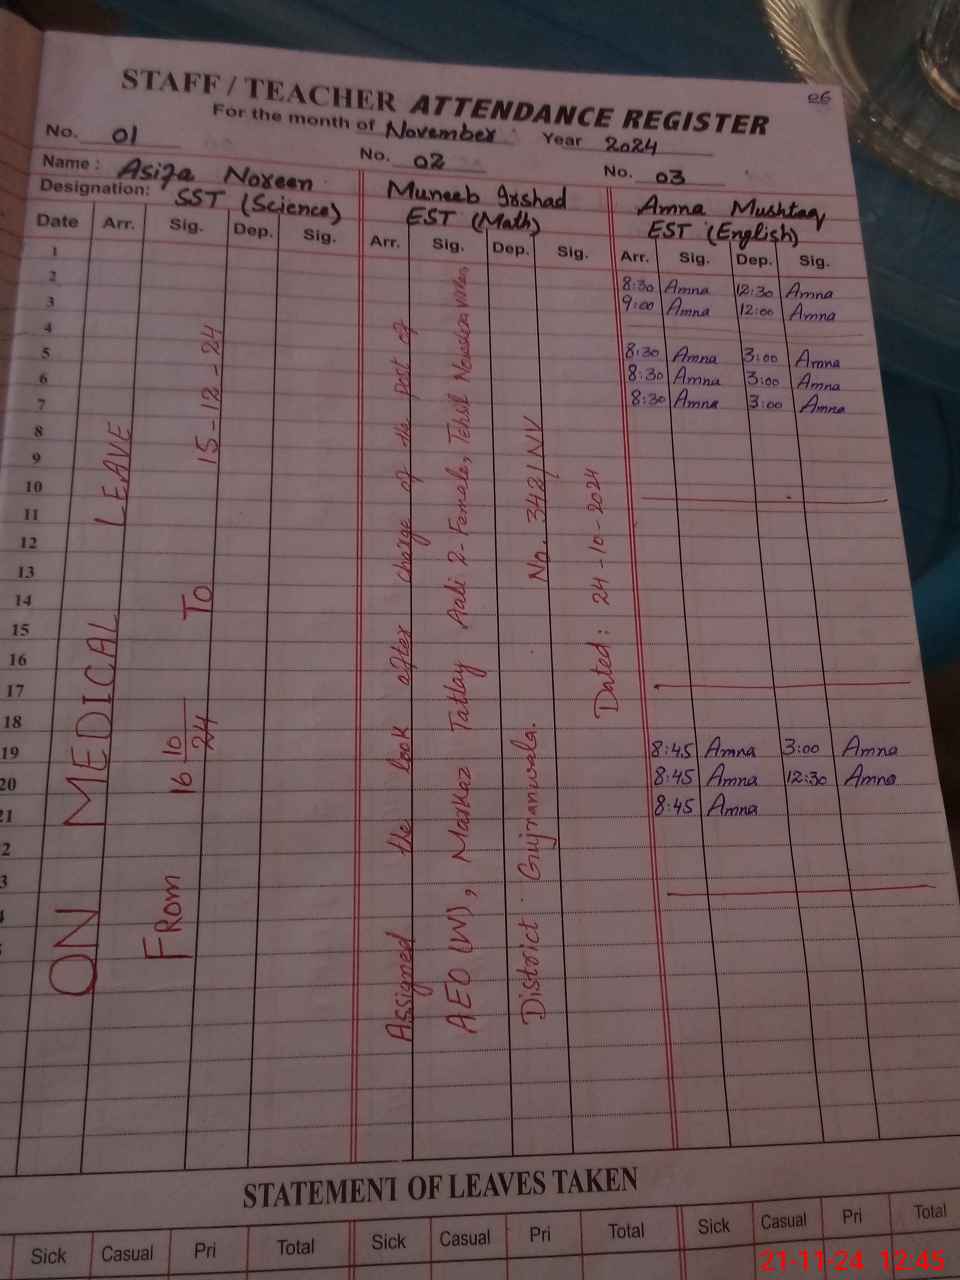 06
STAFF / TEACHER ATTENDANCE REGISTER
For the month of November Year 2024
No. 01 No. 02 No. 03
Name : Asifa Noreen Muneeb Irshad Amna Mushtaq
Designation: SST (Science) EST (Math) EST (English)
Date Arr. Sig. Dep. Sig. Arr. Sig. Dep. Sig. Arr. Sig. Dep. Sig.
1 8:30 Amna 12:30 Amna
2 9:00 Amna 12:00 Amna
3
4 8:30 Amna 3:00 Amna
5 8:30 Amna 3:00 Amna
6 8:30 Amna 3:00 Amna
7
8
9
10
11
12
13
14
15
16
17
18
19 8:45 Amna 3:00 Amna
20 8:45 Amna 12:30 Amna
21 8:45 Amna
2
3
4
5
ON MEDICAL LEAVE
FROM 16 10/24 TO 15-12-24
Assigned the look after charge of the post of
AEO (W), Markaz Tatlay Aali 2-Female, Tehsil Nowshera Virkan
District Gujranwala. No. 342/NV
Dated: 24-10-2024
STATEMENT OF LEAVES TAKEN
Sick Casual Pri Total Sick Casual Pri Total Sick Casual Pri Total
21-11-24 12:45